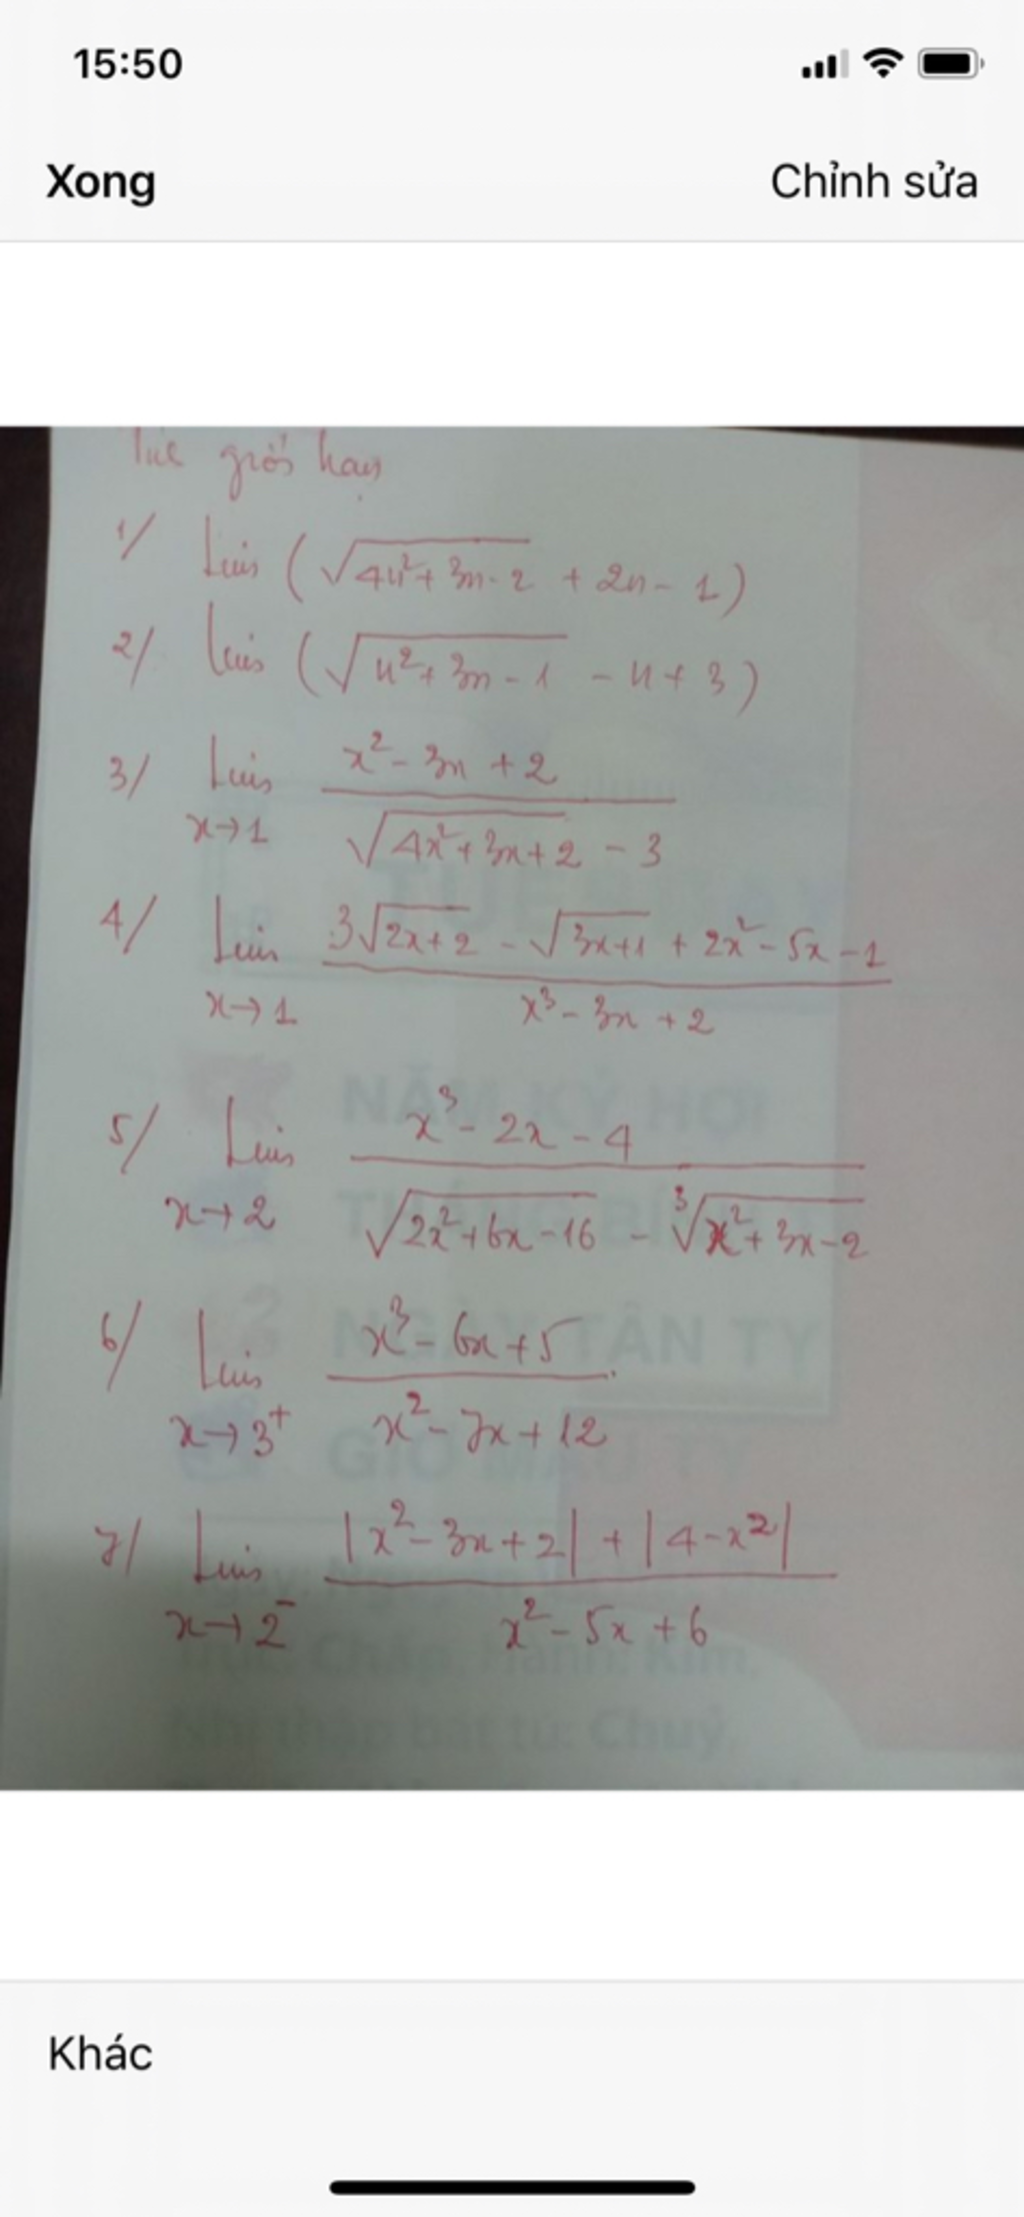 15:50
Xong
Chỉnh sửa
giới hạn
1/ Lim (√(4n²+3n-2) + 2n - 1)
2/ Lim (√(n²+3n-1) - n + 3)
3/ Lim x→1 (x² - 3x + 2)/(√(4x²+3x+2) - 3)
4/ Lim x→1 (3√(2x+2) - √(3x+1) + 2x² - 5x - 1)/(x³ - 3x + 2)
5/ Lim x→2 (x³ - 2x - 4)/(√(2x²+6x-16) - ³√(x²+3x-2))
6/ Lim x→3⁺ (x³ - 6x + 5)/(x² - 7x + 12)
7/ Lim x→2⁻ (|x² - 3x + 2| + |4 - x²|)/(x² - 5x + 6)
NĂM KỶ HỢI
TÂN TY
Khác